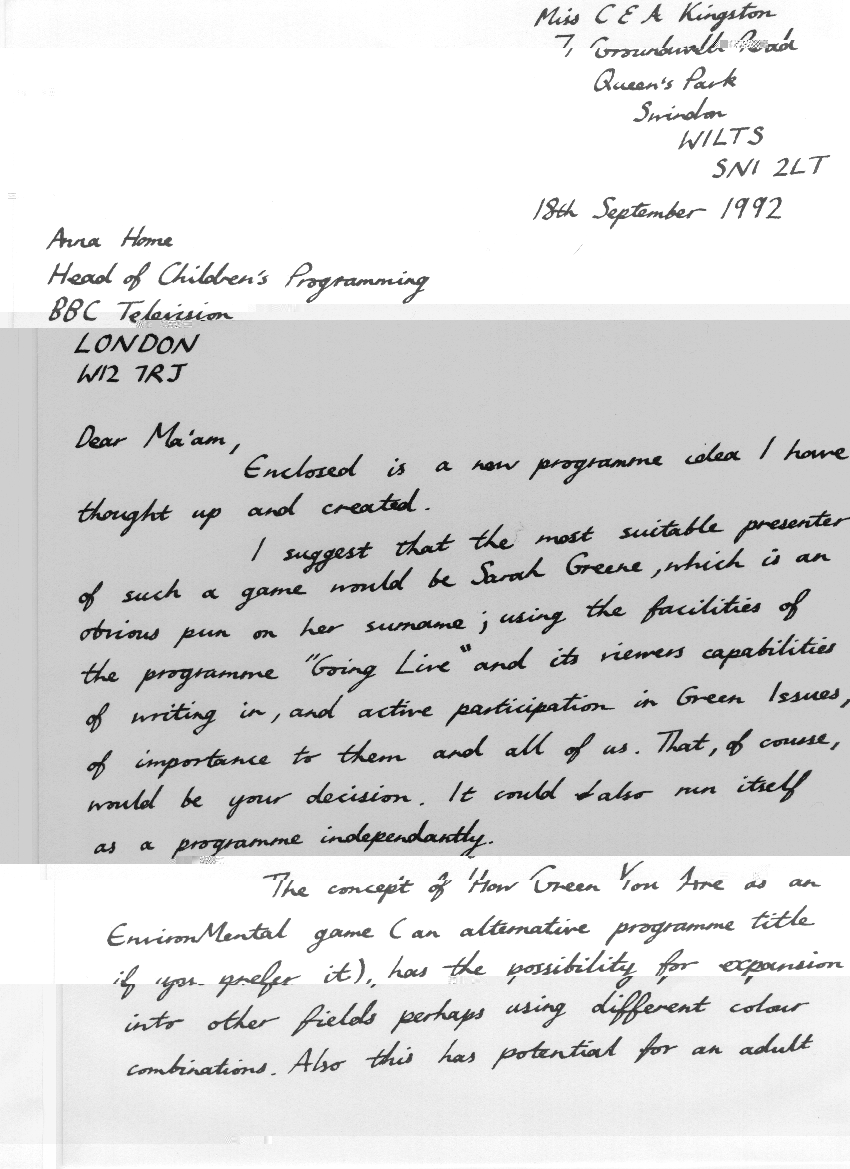 Miss C E A Kingston
7, Groundwell Road
Queen's Park
Swindon
WILTS
SN1 2LT
18th September 1992
Anna Home
Head of Children's Programming
BBC Television
LONDON
W12 7RJ
Dear Ma'am,
Enclosed is a new programme idea I have
thought up and created.
I suggest that the most suitable presenter
of such a game would be Sarah Greene, which is an
obvious pun on her surname; using the facilities of
the programme "Going Live" and its viewers capabilities
of writing in, and active participation in Green Issues,
of importance to them and all of us. That, of course,
would be your decision. It could also run itself
as a programme independantly.
The concept of 'How Green You Are as an
EnvironMental game (an alternative programme title
if you prefer it), has the possibility for expansion
into other fields perhaps using different colour
combinations. Also this has potential for an adult